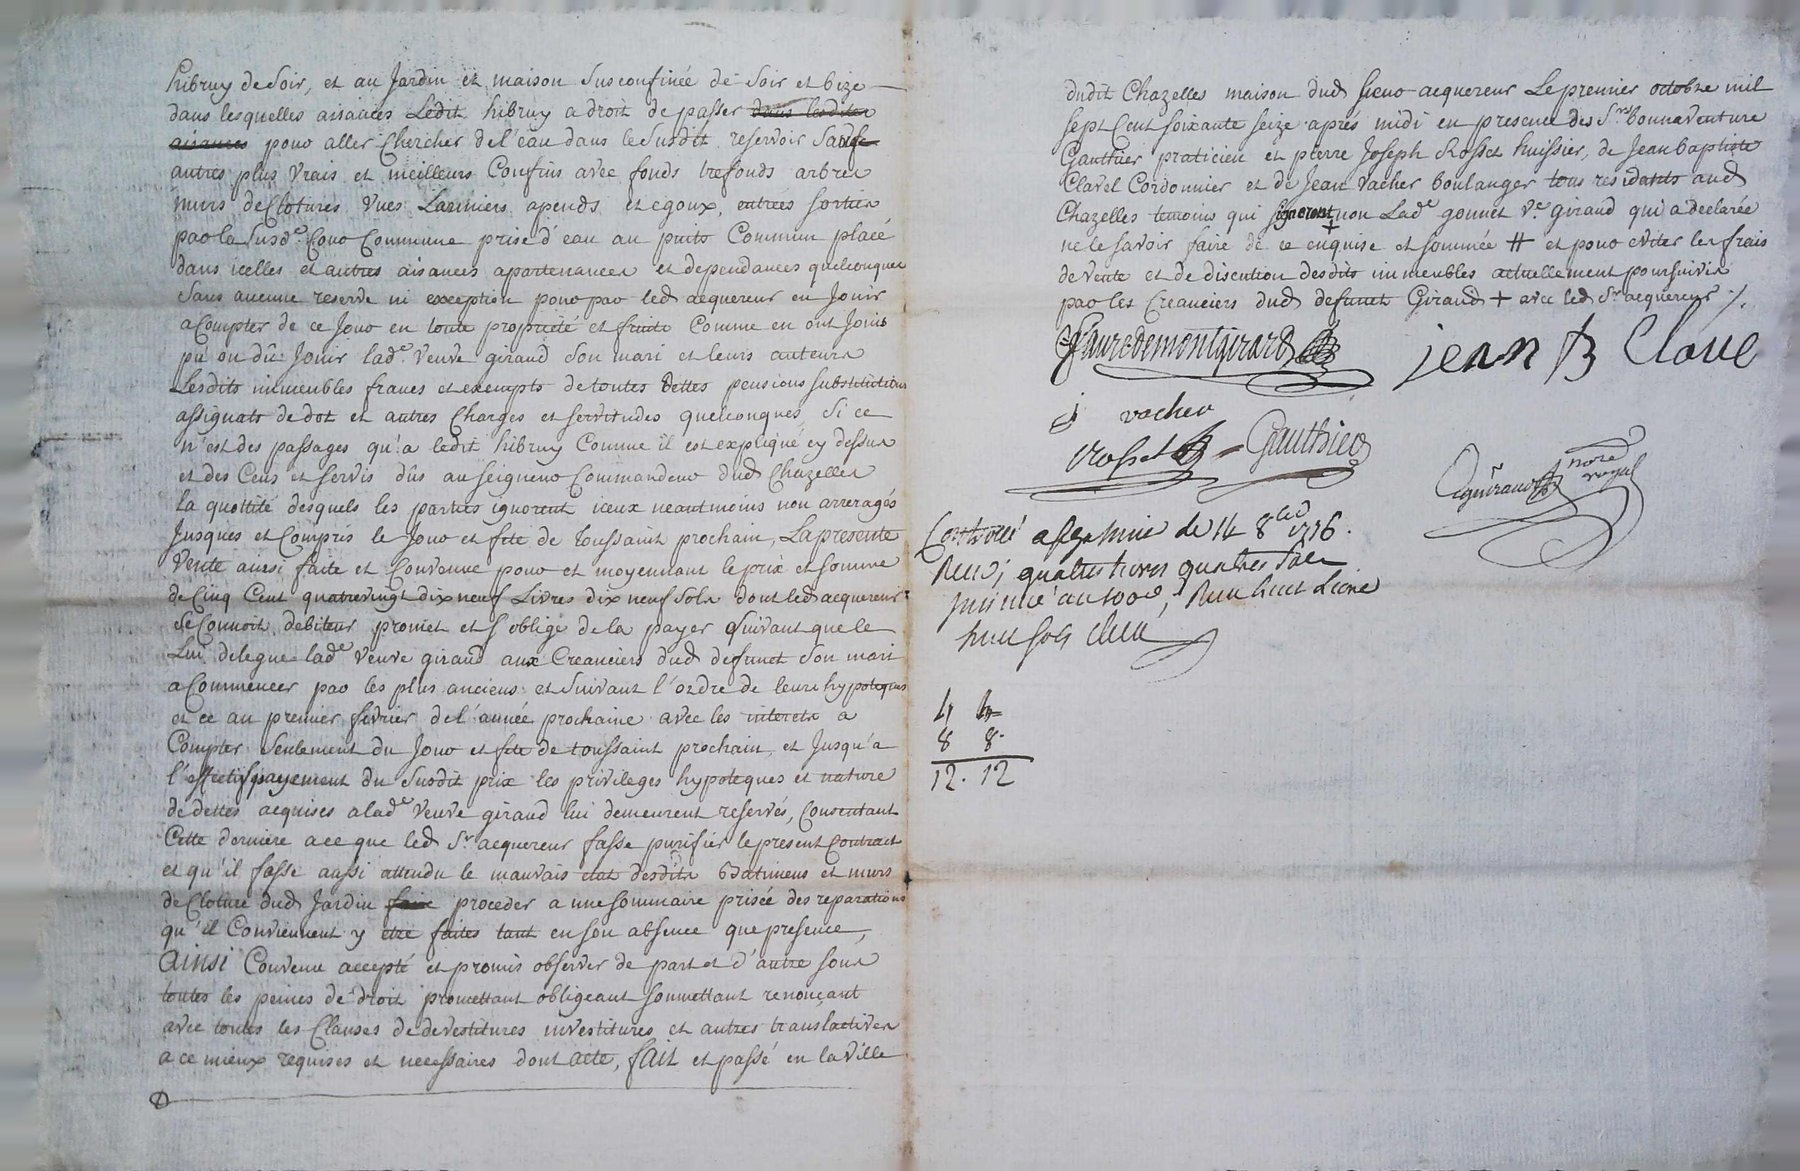 hibruy de Soir, et au Jardin et maison Susconfinée de Soir et bize
dans lesquelles aisances Ledit hibruy a droit de passer dans lesdites
aisances pour aller Chercher de l'eau dans le Susdit reservoir Sauf
autres plus Vrais et meilleurs Confins avec fonds trefonds arbres
murs de Clotures Vues Larmiers apends et egoux, entrées sorties
par la Susd.e Cour Commune prise d'eau au puits Commun placé
dans icelles et autres aisances apartenances et dependances quelconques
Sans aucune reserve ni exception pour par led acquereur en Jouir
a Compter de ce Jour en toute propriété et fruits Comme en ont Joüis
pu ou dû Jouir lad.e Veuve giraud Son mari et leurs auteurs
Lesdits immeubles francs et exempts de toutes Dettes pensions substitutions
assignats de dot et autres Charges et servitudes quelconques, Si ce
n'est des passages qu'a ledit hibruy Comme il est expliqué cy dessus
et des Cens et servis dûs au Seigneur Commandeur dud Chazelles
la quottité desquels les parties ignorent iceux neantmoins non arreragés
Jusques et Compris le Jour et fete de Toussaint prochain, La presente
Vente ainsi faite et Convenue pour et moyennant le prix et somme
de Cinq Cent quatrevingt dix neuf Livres dix neuf Sols dont led acquereur
Se Connoit debiteur promet et s'oblige de la payer Suivant que le
Lui delegue lad.e Veuve giraud aux Creanciers dud defunct Son mari
a Commencer par les plus anciens et Suivant l'ordre de leurs hypoteques
et ce au premier fevrier de l'année prochaine avec les interets a
Compter Seulement du Jour et fete de toussaint prochain, et Jusqu'a
l'effectif payement du Susdit prix les privileges hypoteques et nature
de dettes acquises a lad.e Veuve giraud lui demeurent reservés, Consentant
Cette derniere a ce que led S.r acquereur fasse purifier le present Contract
et qu'il fasse aussi attendu le mauvais etat desdits Batimens et murs
de Cloture dud Jardin faire proceder a une sommaire prisée des reparations
qu'il Conviennent y etre faites tant en son absence que presence,
ainsi Convenu accepté et promis observer de part et d'autre sous
toutes les peines de droit promettant obligeant soumettant renonçant
avec toutes les Clauses de devestitures investitures et autres translactives
a ce mieux requises et necessaires dont acte, fait et passé en la Ville
dudit Chazelles maison dud sieur acquereur Le premier octobre mil
sept Cent soixante seize après midi en presence des S.rs bonnaventure
Gauthier praticien et pierre Joseph Rosset huissier, de Jean baptiste
Clavel Cordonnier et de Jean Vacher boulanger tous residants aud
Chazelles temoins qui signeront non Lad.e gonnet V.e giraud qui a declarée
ne le savoir faire de ce enquise et sommée # et pour eviter les frais
de vente et de discution desdits immeubles actuellement poursuivis
par les Creanciers dud defunct Giraud + avec led S.r acquereur ./.
Faure de montgirard
jean B Clave
j vacher
rosset
Gauthier
nore
royal
Controllé a St le 14 8bre 1776.
Recu quatre livres quatre sols
huit sols
4 4
8 8
12. 12